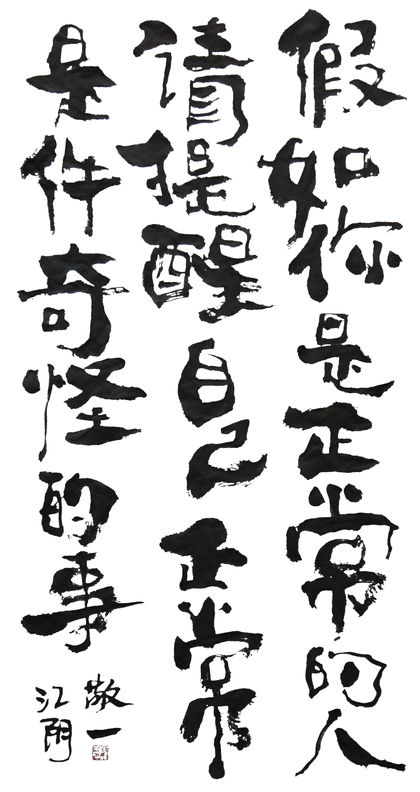 假如你是正常的人
请提醒自己正常
是件奇怪的事
敬一
江門